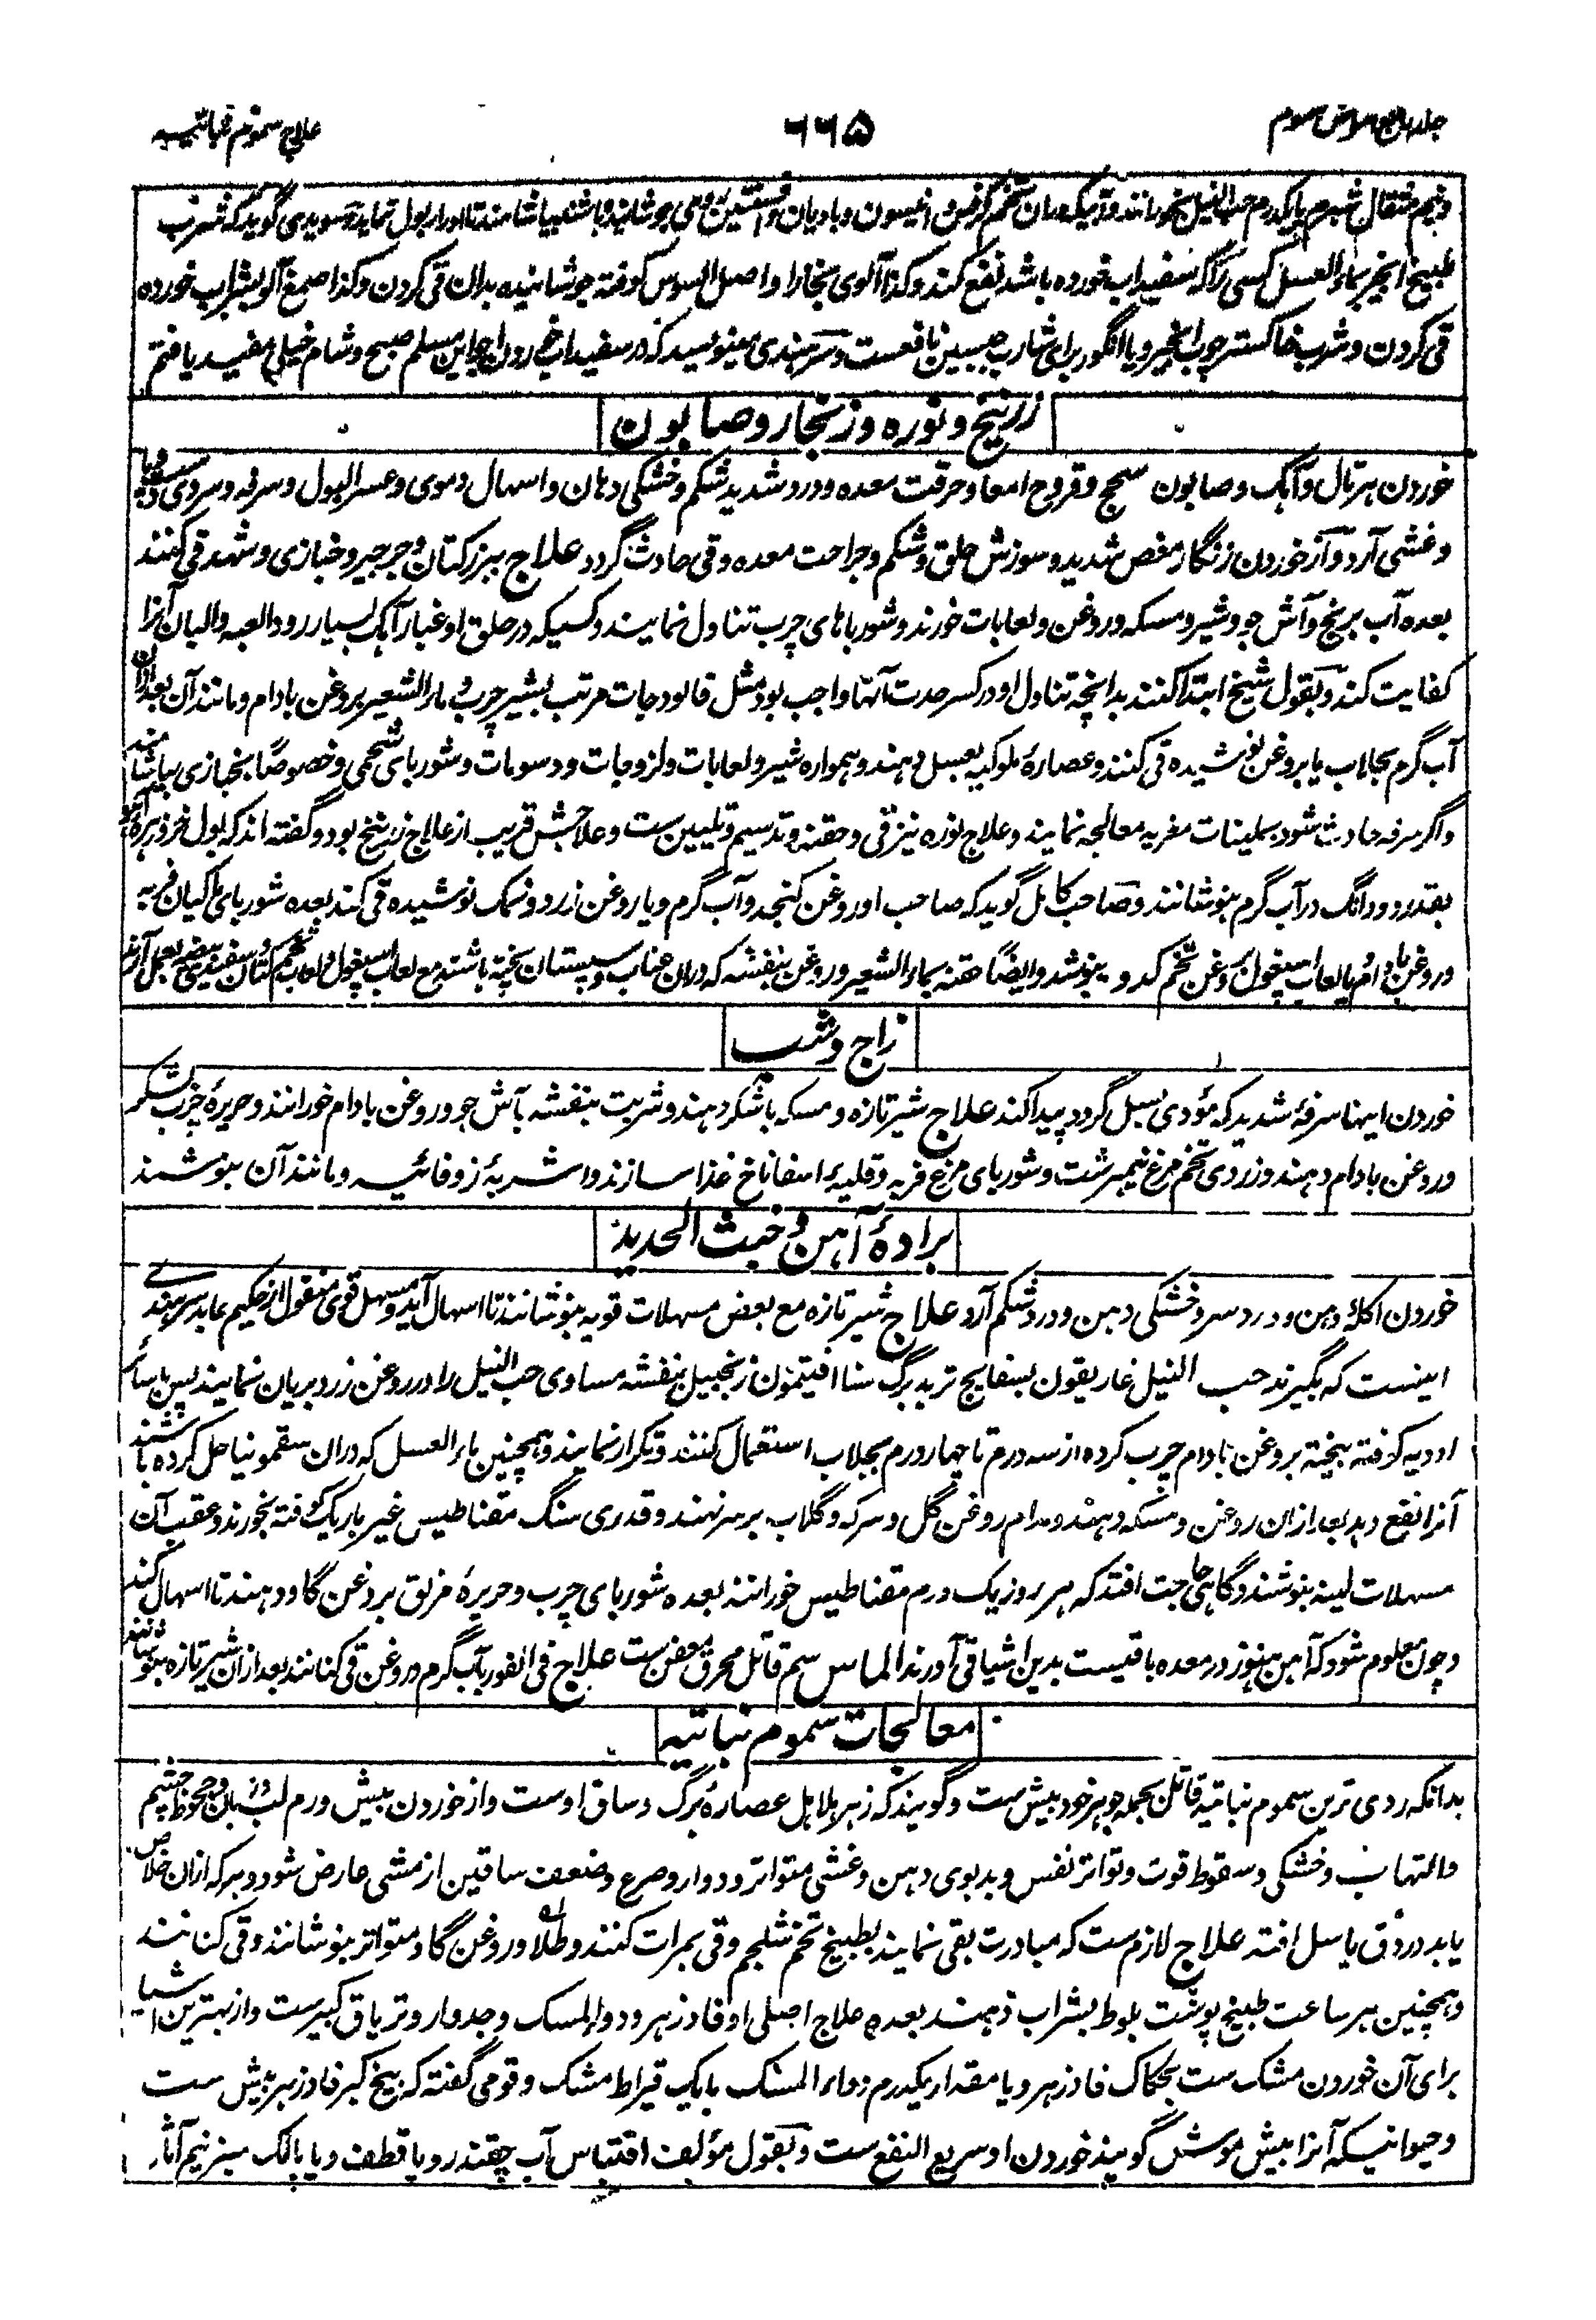 علاج سموم نباتیه
۶۶۵
جلد چهارم
ونیم مثقال شبرم یا یکدرم حب النیل بخورانند و آنیکه دران تخم کرفس و انیسون و بادیان و افسنتین رومی جوشانیده باشند بیاشامند تا ادرار بول نماید و سویدی گوید که شرب
طبیخ انجیر بماء العسل کسی را که سفیداب خورده باشد نفع کند و کذا آلوی بخارا و اصل السوس کوفته جوشانیده بدان قی کردن و کذا صمغ آلو بشراب خورده
قی کردن و شرب خاکستر چوب انجیر و یا انگور برای شارب جبسین نافعست و سرهندی مینویسد که در سفیداب خوردن اجواین مسلم صبح و شام خیلی مفید یافتم
زرنیخ و نوره و زنجار و صابون
خوردن هرتال و آهک و صابون سحج و قروح امعا و حرقت معده و درد شدید شکم و خشکی دهان و اسهال دموی و عسر البول و سرفه و سردی دست و پا
و غشی آرد و از خوردن زنگار مغص شدید و سوزش حلق و شکم و جراحت معده و قی حادث گردد علاج ببزر کتان و جرجیر و خبازی و شهد قی کنند
بعده آب برنج و آش جو و شیر و مسکه و روغن و لعابات خورند و شورباهای چرب تناول نمایند و کسیکه در حلق او غبار آهک بسیار رود العبه و البان آنرا
کفایت کند و بقول شیخ ابتدا کنند بدانچه تناول او در کسر حدت آنها واجب بود مثل فالودجات مرتب بشیر چرب و ماء الشعیر بروغن بادام و مانند آن بعد ازان
آب گرم بجلاب یا بروغن نوشیده قی کنند و عصارهٔ ملوکیه بعسل دهند و همواره شیر و لعابات و لزوجات و دسومات و شوربای شحمی و خصوصاً بخبازی بیاشامند
و اگر سرفه حادث شود بملینات مغریه معالجه نمایند و علاج نوره نیز قی و حقنه و تدسیم و تلیین ست و علاجش قریب از علاج زرنیخ بود و گفته اند که بول خر و زهرهٔ
بقدر دو دانگ در آب گرم بنوشانند و صاحب کامل گوید که صاحب او روغن کنجد و آب گرم و یا روغن زرد و نمک نوشیده قی کند بعده شوربای ماکیان فربه
و روغن بادام یا لعاب اسپغول و روغن تخم کدو بنوشد و ایضاً حقنه بماء الشعیر و روغن بنفشه که دران عناب و سپستان پخته باشند مع لعاب اسپغول و لعاب تخم کتان و سفیدی بیضه بعمل آرند
زاج و شب
خوردن اینها سرفهٔ شدید که مؤدی بسل گردد پیدا کند علاج شیر تازه و مسکه با شکر دهند و شربت بنفشه بآش جو و روغن بادام خورانند و حریرهٔ چرب بشکر
و روغن بادام دهند و زردی تخم مرغ نیمبرشت و شوربای مرغ فربه و قلیهٔ اسفاناخ غذا سازند و اشربهٔ زوفائیه و مانند آن بنوشند
برادهٔ آهن و خبث الحدید
خوردن اکلهٔ دهن و درد سر و خشکی دهن و درد شکم آرد علاج شیر تازه مع بعض مسهلات قویه بنوشانند تا اسهال آید و مسهل قوی منقول از حکیم عابد سرهندی
اینست که بگیرند حب النیل غاریقون بسفایج تربد برگ سنا افتیمون زنجبیل بنفشه مساوی حب النیل را در روغن زرد بریان نمایند پس با سائر
ادویه کوفته بیخته بروغن بادام چرب کرده از سه درم تا چهار درم بجلاب استعمال کنند و تکرار نمایند و همچنین ماء العسل که دران سقمونیا حل کرده باشند
آنرا نفع دهد بعد ازان روغن و مسکه دهند و مدام روغن گل و سرکه و گلاب بر سر نهند و قدری سنگ مقناطیس غیر باریک کوفته بخورند و عقب آن
مسهلات لینه بنوشند و گاهی حاجت افتد که هر روز یک درم مقناطیس خورانند بعده شوربای چرب و حریرهٔ مزلق بروغن گاو دهند تا اسهال کند
و چون معلوم شود که آهن هنوز در معده باقیست بدین اشیا قی آورند الماس سم قاتل محرق معفن ست علاج فی الفور بآب گرم و روغن قی کنانند بعد ازان شیر تازه بنوشانند
معالجات سموم نباتیه
بدانکه ردی ترین سموم نباتیه قاتل بجمله جوهر خود بیش ست و گویند که زهر هلاهل عصارهٔ برگ و ساق اوست و از خوردن بیش ورم لب و زبان و جحوظ چشم
و التهاب و خشکی و سقوط قوت و تواتر نفس و بدبوی دهن و غشی متواتر و دوار و صرع و ضعف ساقین از مشی عارض شود و هر که ازان خلاص
یابد در دق یا سل افتد علاج لازم ست که مبادرت بقی نمایند بطبیخ تخم شلجم و قی بمرات کنند و طلاء و روغن گاو متواتر بنوشانند و قی کنانند
و همچنین هر ساعت طبیخ پوست بلوط بشراب دهند بعده علاج اصلی او فادزهر و دواء المسک و جدوار و تریاق کبیر ست و از بهترین اشیا
برای آن خوردن مشک ست بحکاک فادزهر و یا مقدار یکدرم دواء المسک با یک قیراط مشک و قومی گفته که بیخ کبر فادزهر بیش ست
و حیوانیکه آنرا بیش موش گویند خوردن او سریع النفع ست و بقول مؤلف اقتباس آب چقندر و یا قطف و یا پالک سبز نیم آثار